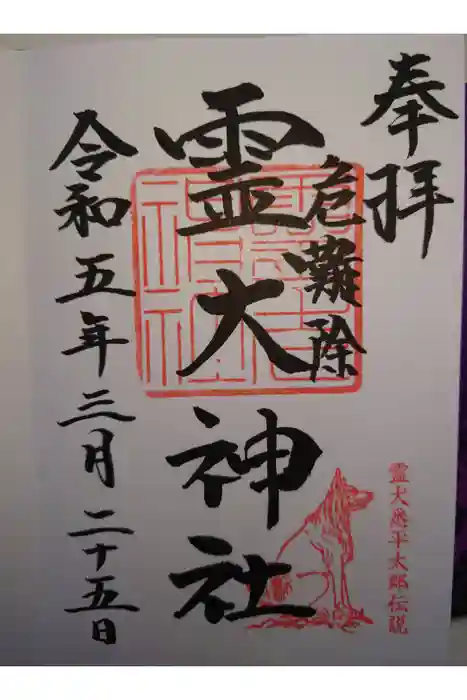 奉拝
危難除
霊大神社
令和五年三月二十五日
霊犬悉平太郎伝説